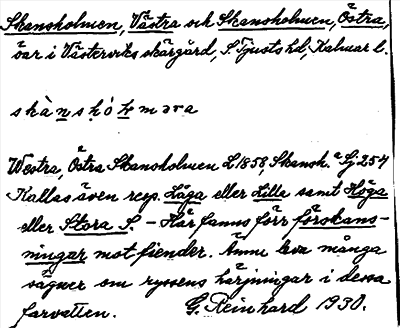 Skansholmen, Västra och Skansholmen, Östra,
öar i Västerviks skärgård, S Tjusts hd, Kalmar l.
skànshólmara
Westra, Östra Skansholmen L 1858, Skansh. Gj 254
Kallas även resp. Låga eller Lilla samt Höga
eller Stora S. – Här fanns förr förskans-
ningar mot fiender. Ännu leva många
sägner om ryssens härjningar i dessa
farvatten. G. Reinhard 1930.